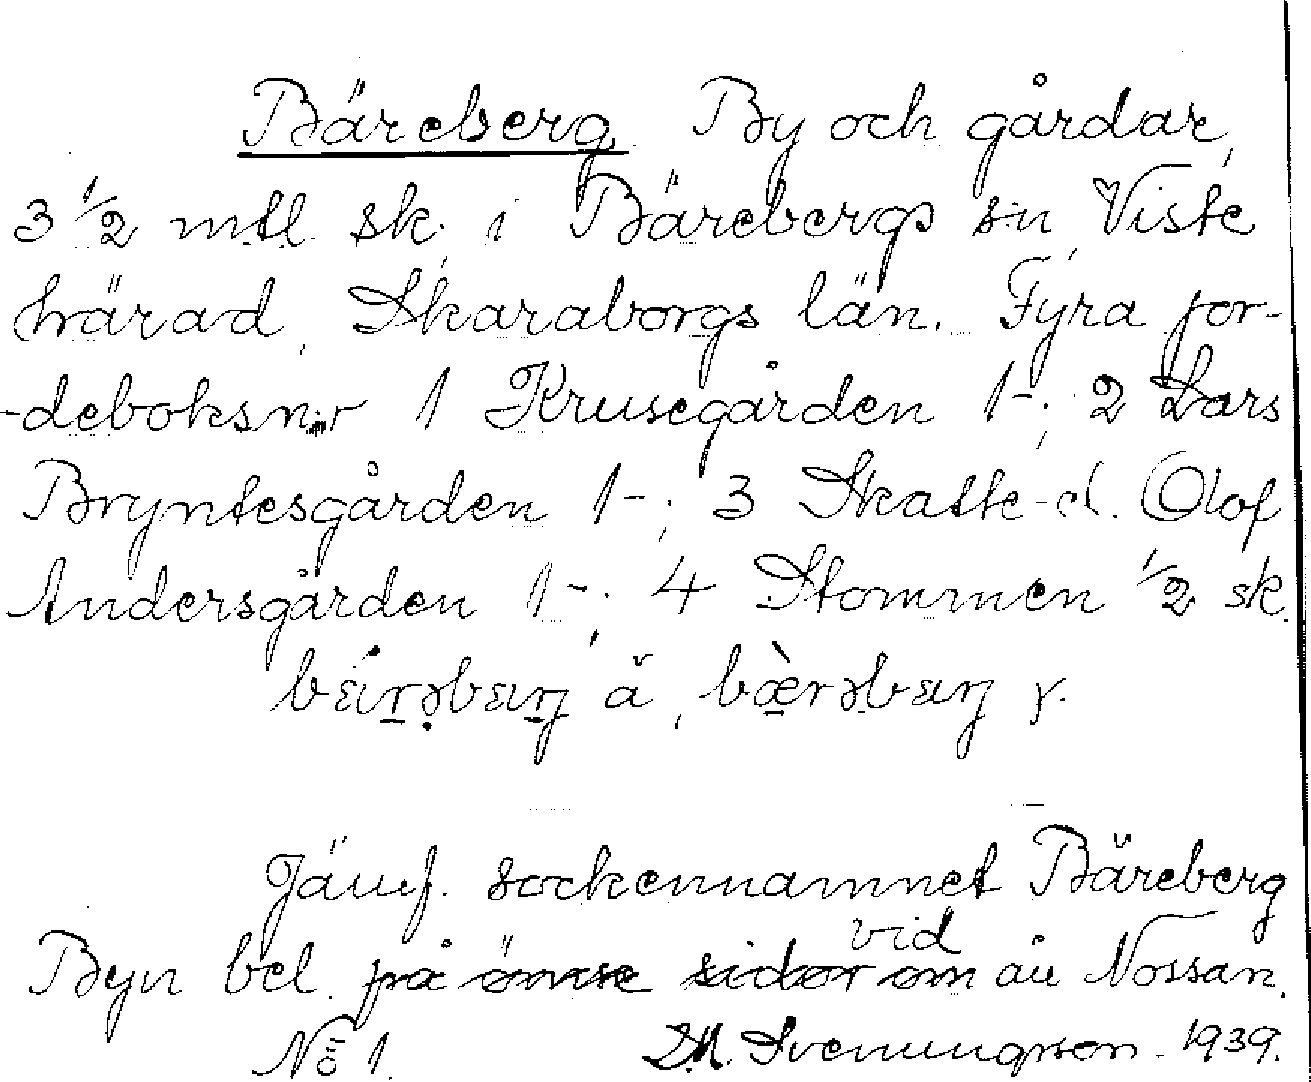 Bäreberg By och gårdar,
3 1/2 mtl sk. i Bärebergs sn, Viste
härad, Skaraborgs län. Fyra jor-
-deboksnr 1 Krusegården 1-; 2 Lars
Bryntesgården 1-; 3 Skatte-d. Olof
Andersgården 1-; 4 Stommen 1/2 sk.
ä, y.
Jämf. sockennamnet Bäreberg
Byn bel. på ömse sidor om vid ån Nossan.
No 1. D.M. Svenungsson. 1939.